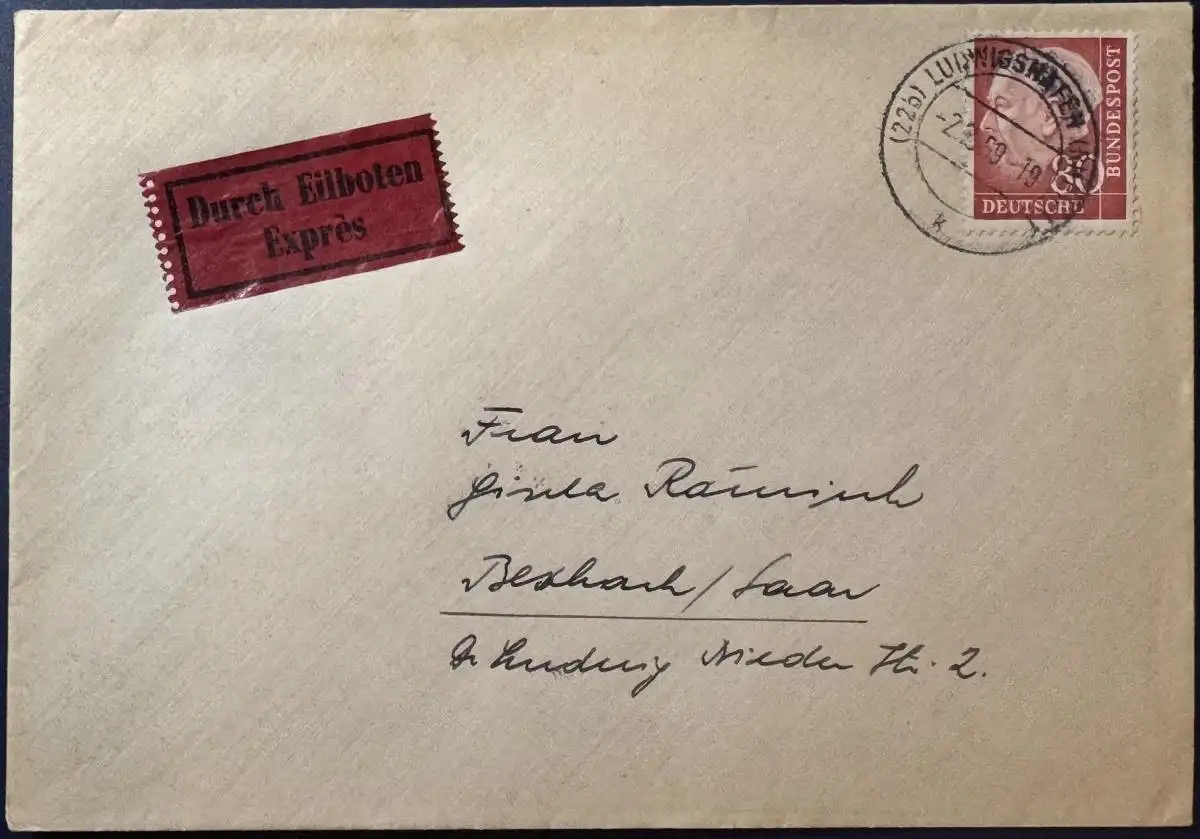 Durch Eilboten
Exprès
(22b) LUDWIGSHAFEN
59-19
k
80
DEUTSCHE
BUNDESPOST
Frau
Gisela
Bexbach/Saar
Dr Ludwig Nieder Str. 2.